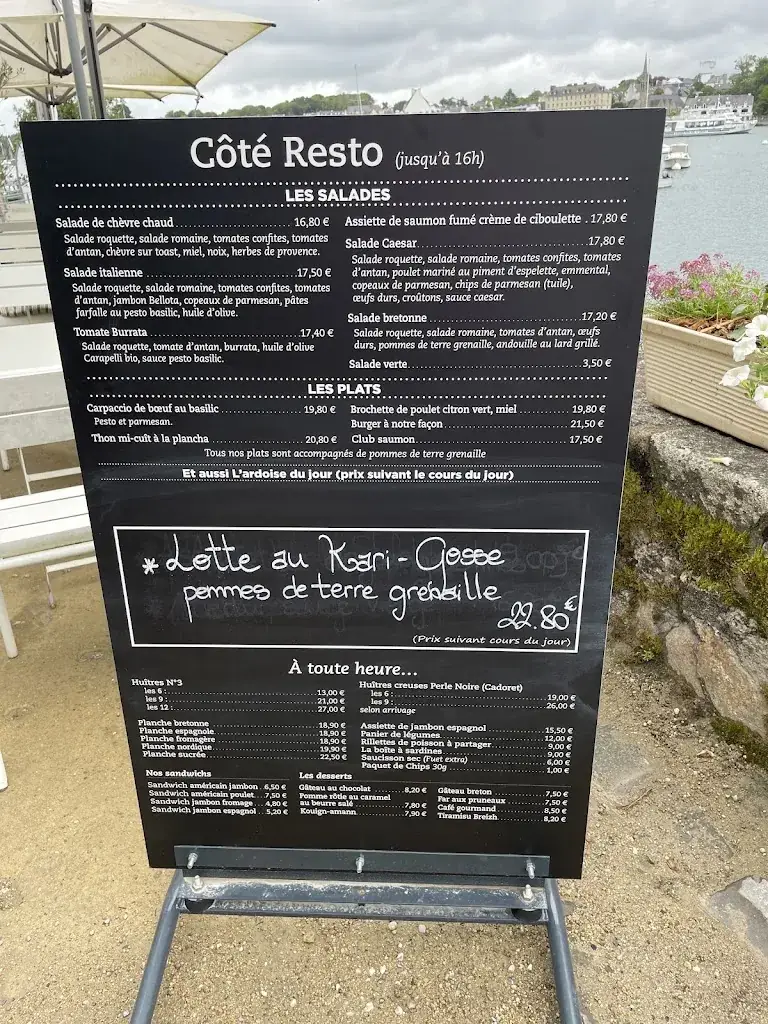 Côté Resto (jusqu'à 16h)
LES SALADES
Salade de chèvre chaud 16,80 €
Salade roquette, salade romaine, tomates confites, tomates
d'antan, chèvre sur toast, miel, noix, herbes de provence.
Salade italienne 17,50 €
Salade roquette, salade romaine, tomates confites, tomates
d'antan, jambon Bellota, copeaux de parmesan, pâtes
farfalle au pesto basilic, huile d'olive.
Tomate Burrata 17,40 €
Salade roquette, tomate d'antan, burrata, huile d'olive
Carapelli bio, sauce pesto basilic.
Assiette de saumon fumé crème de ciboulette . 17,80 €
Salade Caesar 17,80 €
Salade roquette, salade romaine, tomates confites, tomates
d'antan, poulet mariné au piment d'espelette, emmental,
copeaux de parmesan, chips de parmesan (tuile),
œufs durs, croûtons, sauce caesar.
Salade bretonne 17,20 €
Salade roquette, salade romaine, tomates d'antan, œufs
durs, pommes de terre grenaille, andouille au lard grillé.
Salade verte 3,50 €
LES PLATS
Carpaccio de bœuf au basilic 19,80 €
Pesto et parmesan.
Thon mi-cuît à la plancha 20,80 €
Brochette de poulet citron vert, miel 19,80 €
Burger à notre façon 21,50 €
Club saumon 17,50 €
Tous nos plats sont accompagnés de pommes de terre grenaille
Et aussi L'ardoise du jour (prix suivant le cours du jour)
* Lotte au Kari-Gosse
pommes de terre grenaille
22.80€
(Prix suivant cours du jour)
À toute heure...
Huîtres N°3
les 6 : 13,00 €
les 9 : 21,00 €
les 12 : 27,00 €
Planche bretonne 18,90 €
Planche espagnole 18,90 €
Planche fromagère 18,90 €
Planche nordique 19,90 €
Planche sucrée 22,50 €
Huîtres creuses Perle Noire (Cadoret)
les 6 : 19,00 €
les 9 : 26,00 €
selon arrivage
Assiette de jambon espagnol 15,50 €
Panier de légumes 12,00 €
Rillettes de poisson à partager 9,00 €
La boîte à sardines 9,00 €
Saucisson sec (Fuet extra) 6,00 €
Paquet de Chips 30g 1,00 €
Nos sandwichs
Sandwich américain jambon . 6,50 €
Sandwich américain poulet 7,50 €
Sandwich jambon fromage 4,80 €
Sandwich jambon espagnol 5,20 €
Les desserts
Gâteau au chocolat 8,20 €
Pomme rôtie au caramel
au beurre salé 7,80 €
Kouign-amann 7,90 €
Gâteau breton 7,50 €
Far aux pruneaux 7,50 €
Café gourmand 8,50 €
Tiramisu Breizh 8,20 €